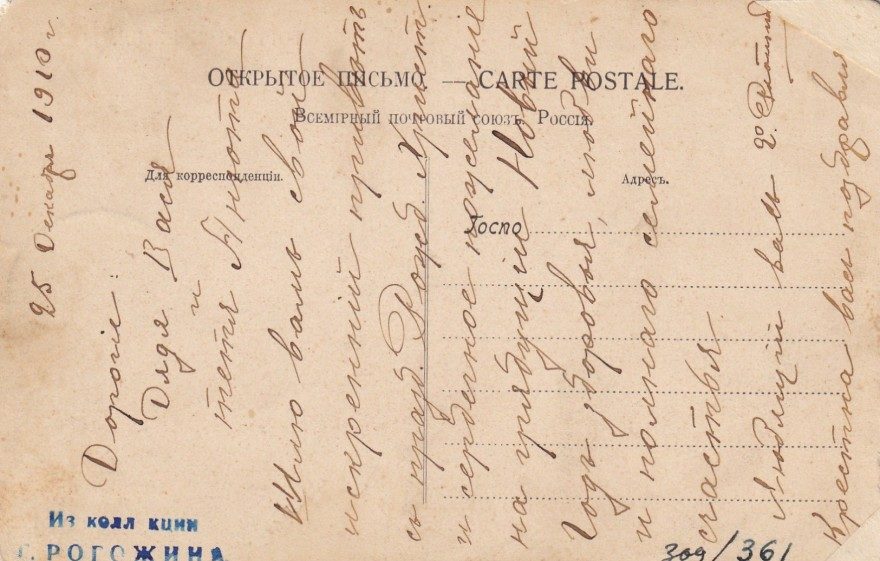 ОТКРЫТОЕ ПИСЬМО. — CARTE POSTALE.
Всемірный почтовый союзъ. Россія.
Для корреспонденціи.
Адресъ.
Госпо
25 Декабря 1910 г.
Дорогіе
Дядя Вася
и
тетя Анюта
Шлю вамъ свой
искренній приветъ
съ празд. Рожд. Христ.
и сердечное пожеланіе
на грядущій Новый
Годъ здоровья, любви
и полнаго семейнаго
счастья
Любящій васъ
Крестна васъ поздравля
Из колл кции
Г. РОГОЖИНА
309/361